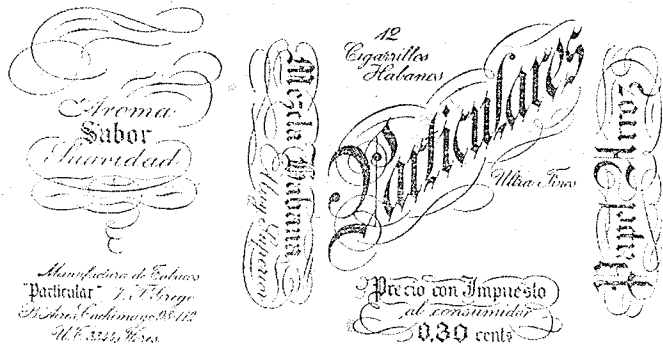 Aroma
Sabor
Suavidad
Manufactura de Tabacos
"Particular"
Mezcla Habana
Muy Superior
12
Cigarrillos
Habanos
Particulares
Ultra Finos
Precio con Impuesto
al consumidor
0.30 cents
Papel Arroz